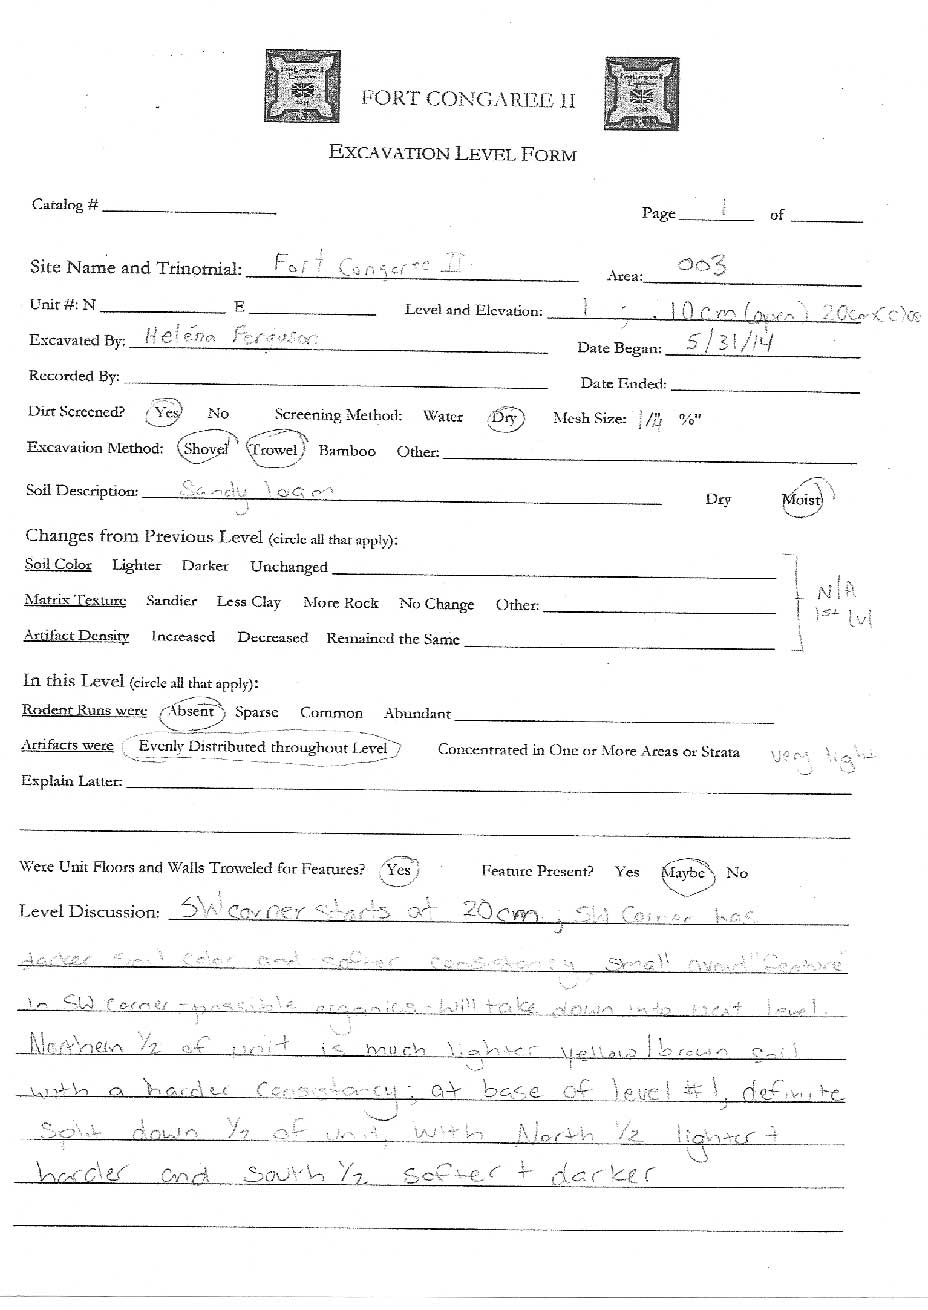 FORT CONGAREE II
EXCAVATION LEVEL FORM
Catalog #
Page 1 of
Site Name and Trinomial: Fort Congaree II
Area: 003
Unit #: N E Level and Elevation: 1 ; 10cm
Excavated By: Helena Ferguson
Date Began: 5/31/14
Recorded By:
Date Ended:
Dirt Screened? Yes No Screening Method: Water Dry Mesh Size: 1/4 %"
Excavation Method: Shovel Trowel Bamboo Other:
Soil Description: Sandy loam Dry Moist
Changes from Previous Level (circle all that apply):
Soil Color Lighter Darker Unchanged
Matrix Texture Sandier Less Clay More Rock No Change Other:
N/A
1st lvl
Artifact Density Increased Decreased Remained the Same
In this Level (circle all that apply):
Rodent Runs were Absent Sparse Common Abundant
Artifacts were Evenly Distributed throughout Level Concentrated in One or More Areas or Strata very light
Explain Latter:
Were Unit Floors and Walls Troweled for Features? Yes Feature Present? Yes Maybe No
Level Discussion: SW corner starts at 20cm; SW Corner has
darker soil color and softer consistancy, small "feature"
in SW corner - possible organics - will take down into next level.
Northern 1/2 of unit is much lighter yellow/brown soil
with a harder consistancy; at base of level #1, definite
split down 1/2 of unit, with North 1/2 lighter +
harder and South 1/2 softer + darker